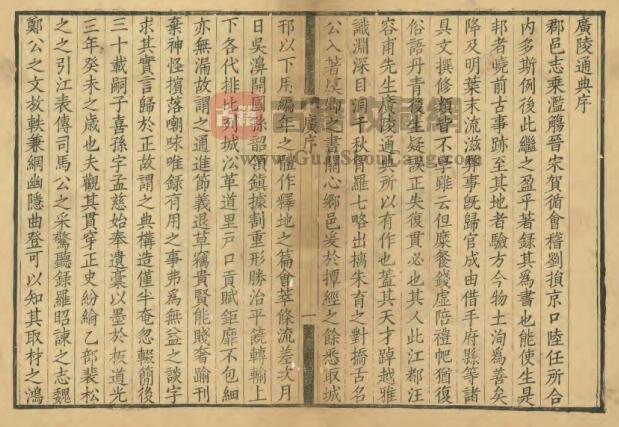 廣陵通典序
郡邑志乘濫觴晉宋賀循會稽劉損京口陸任所合
内多斯例後此繼之盈乎著錄其爲書也能使生是
邦者曉前古事跡至其地者驗方今物土洵爲善矣
降及明葉末流滋弊事旣歸官成由借手府縣等諸
具文撰修類皆不學雖云但糜餐錢虛陪禮帊猶復
俗語丹青後生疑誤正失復貫必也其人此江都汪
容甫先生廣陵通典所以有作也蓋其天才踔越雅
識淵深目洞千秋胷羅七略出擒朱育之對撟舌名
公入著吳鄉之書關心鄉邑爰於撢經之餘悉取城
廣序
一
邗以下用編年之體作釋地之篇會萃條流差次月
日吳濞開國孫韶領鎮據割重形勝治平饒轉輸上
下各代排比列城㳂革道里戸口貢賦鉅靡不包細
亦無漏故謂之通進節義退草竊貴賢能賤奢踰刊
棄神怪擯落嘲咏唯錄有用之事弗爲無益之談字
求其實言歸於正故謂之典構造僅半奄忽輟簡後
三十載嗣子喜孫字孟慈始奉遺稾以墨於板道光
三年癸未之歲也夫觀其貫穿正史紛綸乙部裴松
之之引江表傳司馬公之采驚聽錄羅昭諫之志魏
鄭公之文放軼兼網幽隱曲登可以知其取材之鴻